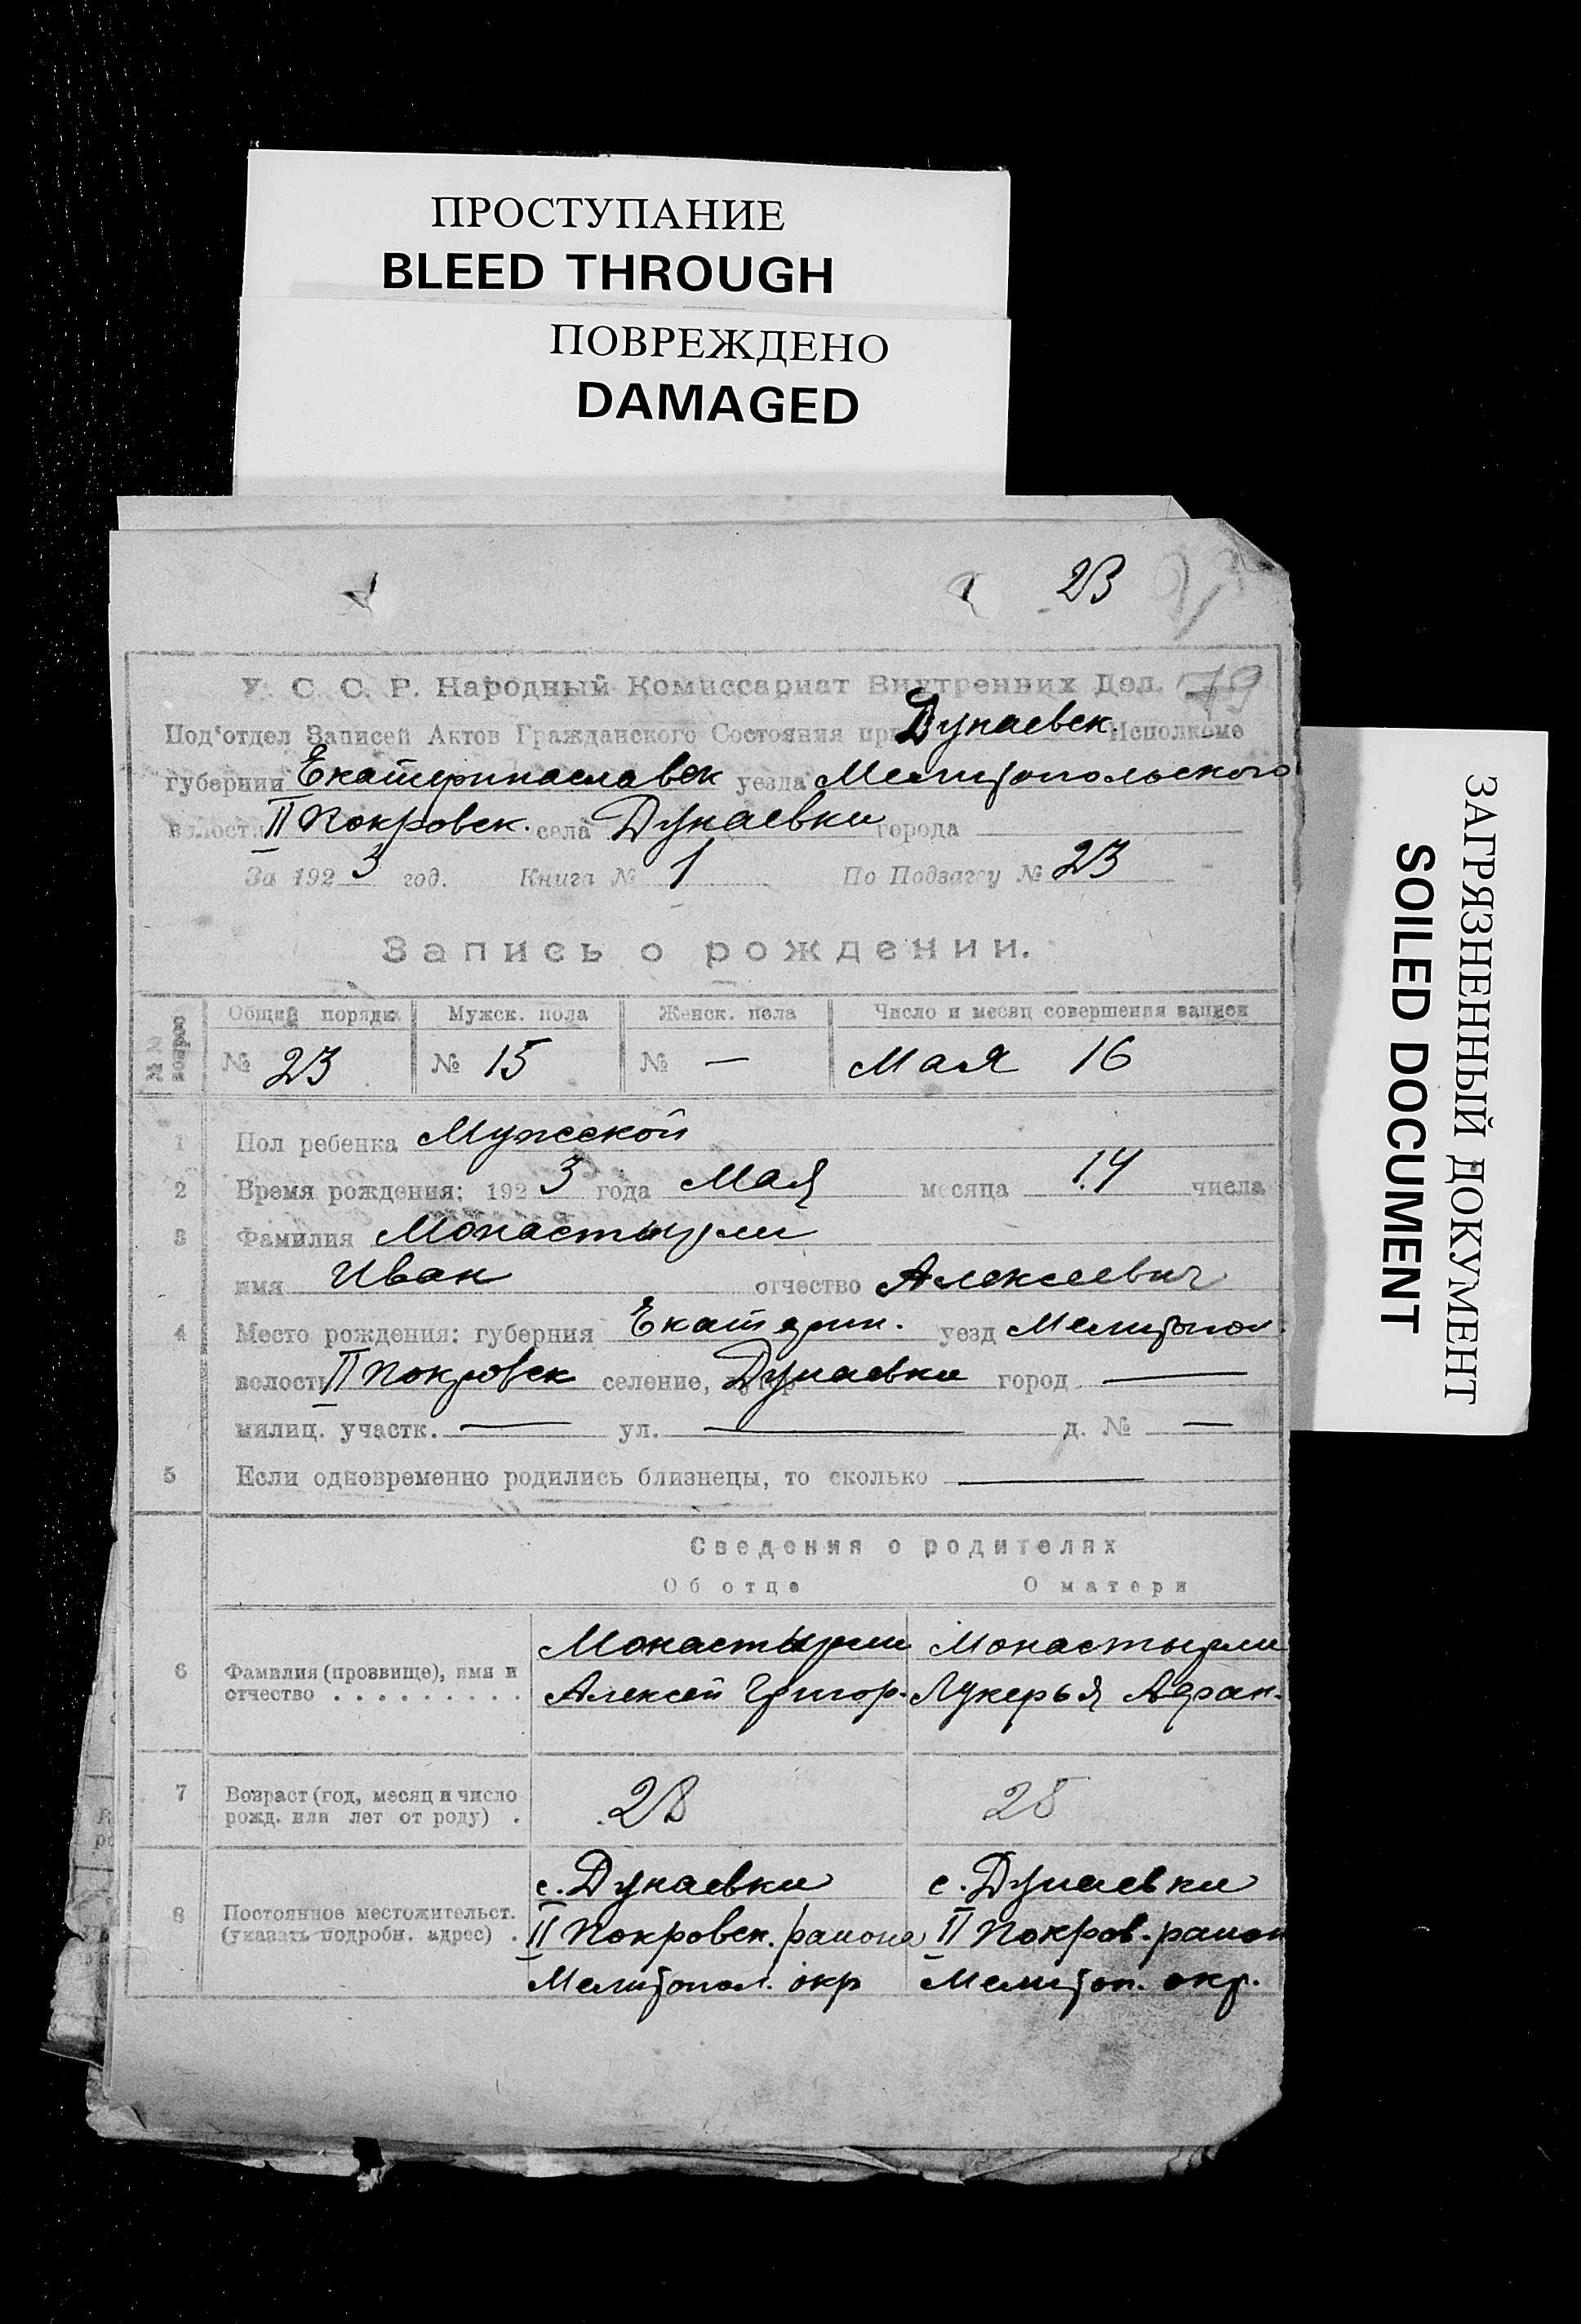 ПРОСТУПАНИЕ
BLEED THROUGH
ПОВРЕЖДЕНО
DAMAGED
ЗАГРЯЗНЕННЫЙ ДОКУМЕНТ
SOILED DOCUMENT
23
79
У. С. С. Р. Народный Комиссариат Внутренних Дел.
Под'отдел Записей Актов Гражданского Состояния при Дунаевск. Исполкоме
губернии Екатеринославск уезда Мелитопольского
волости II Покровск. села Дунаевки города
За 1923 год. Книга № 1 По Подзагсу № 23
Запись о рождении.
№№ вопрос Общий порядк Мужск. пола Женск. пола Число и месяц совершения записи
№ 23 № 15 № — Мая 16
1 Пол ребенка Мужской
2 Время рождения: 1923 года Мая месяца 14 числа
3 Фамилия Монастырли
имя Иван отчество Алексеевич
4 Место рождения: губерния Екатерин. уезд Мелитопол.
волость II Покровск селение, хутор Дунаевка город —
милиц. участк. — ул. — д. № —
5 Если одновременно родились близнецы, то сколько —
Сведения о родителях
Об отце О матери
6 Фамилия (прозвище), имя и отчество . . . . . . . . .
Монастырли Монастырли
Алексей Григор. Лукерья Афан.
7 Возраст (год, месяц и число рожд. или лет от роду) .
28 28
8 Постоянное местожительст. (указать подробн. адрес) .
с. Дунаевки с. Дунаевки
II Покровск. района II Покров. район
Мелитопол. окр Мелитоп. окр.